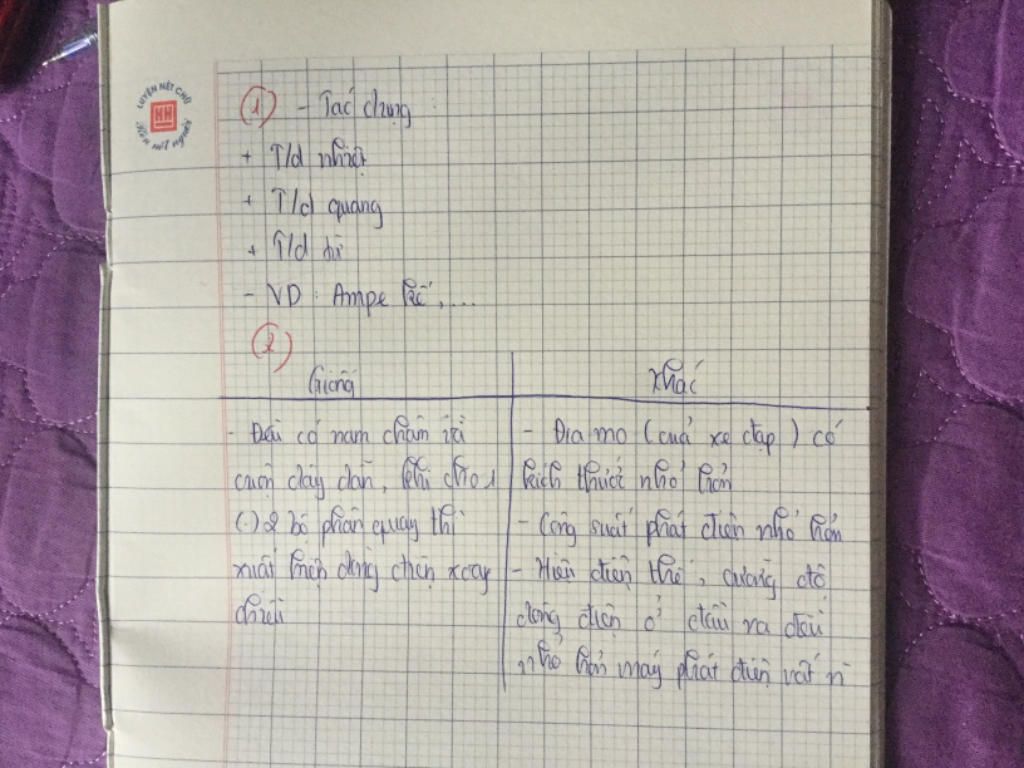 LUYỆN NÉT CHỮ
HH
Rèn nết người
① - Tác dụng
+ T/d nhiệt
+ T/d quang
+ T/d từ
- VD : Ampe kế, ...
②
Giống
Khác
- Đều có nam châm và
cuộn dây dẫn, khi cho 1
(.) 2 bộ phận quay thì
xuất hiện dòng điện xoay
chiều
- Đia-mo (của xe đạp) có
kích thước nhỏ hơn
- Công suất phát điện nhỏ hơn
- Hiệu điện thế, cường độ
dòng điện ở đầu ra đều
nhỏ hơn máy phát điện